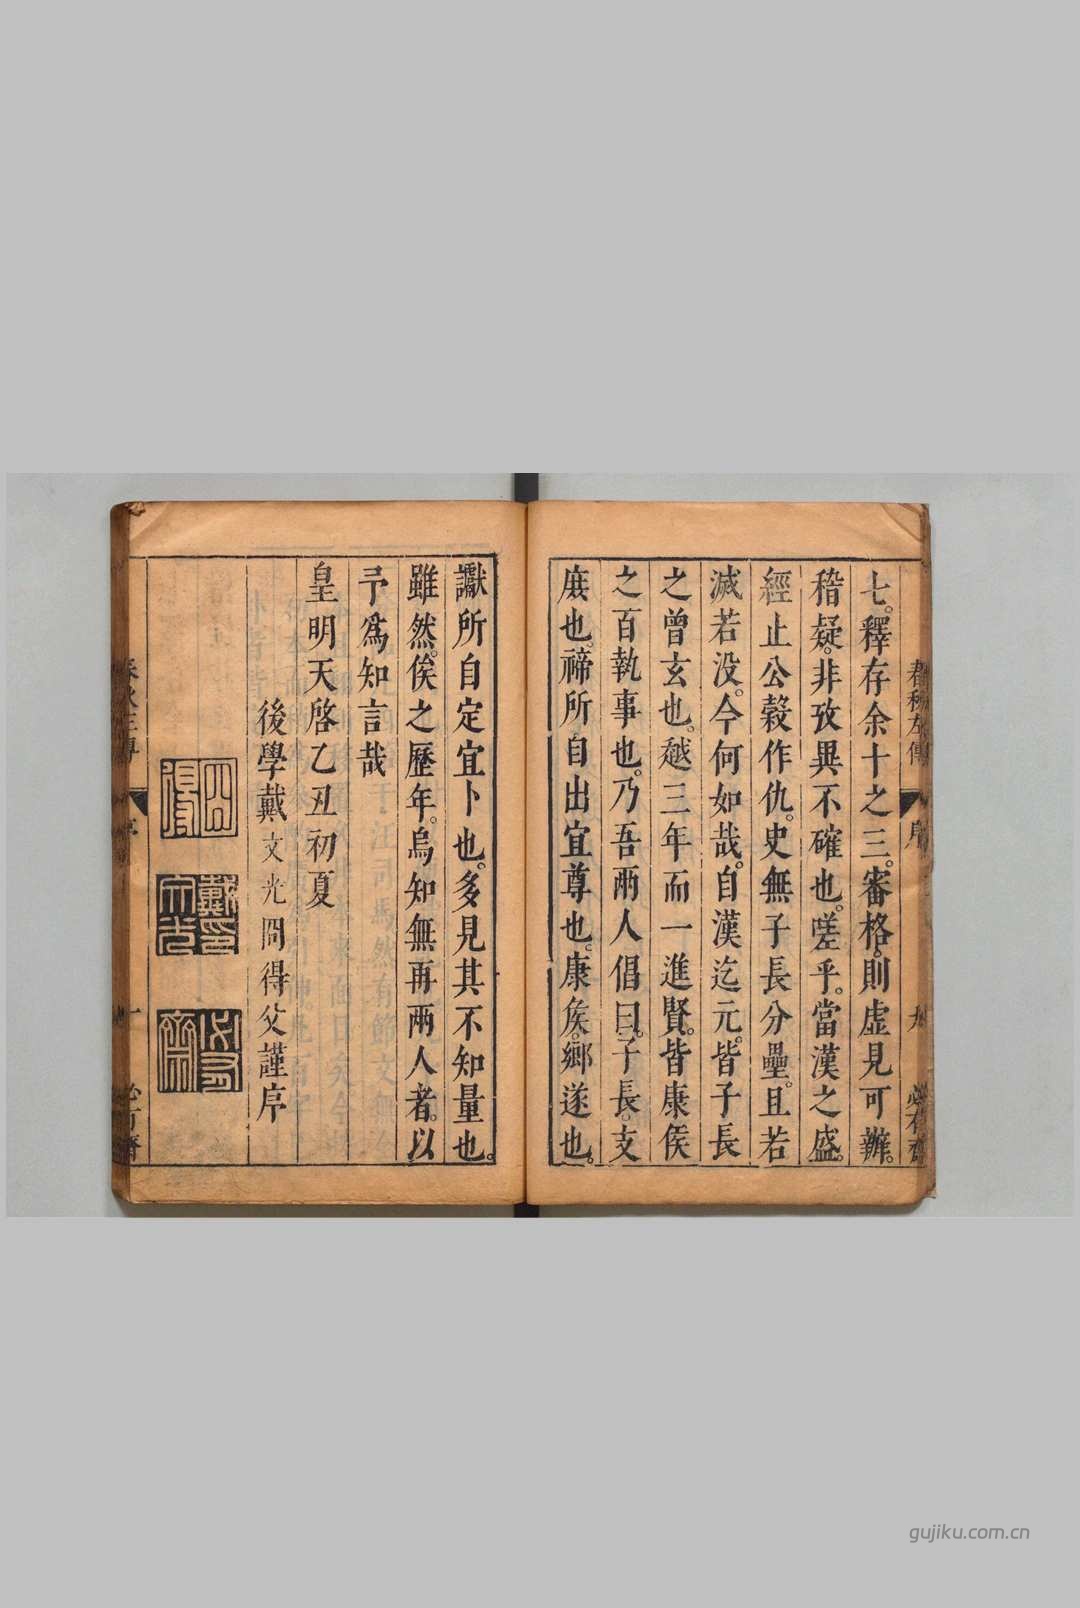 春秋左傳
序
九
必有齋
七。釋存余十之三。審格。則虛見可辦。
稽疑。非攷異不確也。嗟乎。當漢之盛。
經止公穀作仇。史無子長分壘。且若
滅若没。今何如哉。自漢迄元。皆子長
之曾玄也。越三年而一進賢。皆康侯
之百執事也。乃吾兩人倡曰。子長。支
庶也。禘所自出宜尊也。康侯。鄉遂也。
讞所自定宜卜也。多見其不知量也。
雖然。俟之歷年。烏知無再兩人者。以
予爲知言哉
皇明天啓乙丑初夏
後學戴文光冏得父謹序
冏得
戴文光印
必有齋
春秋左傳
序
十
必有齋
gujiku.com.cn